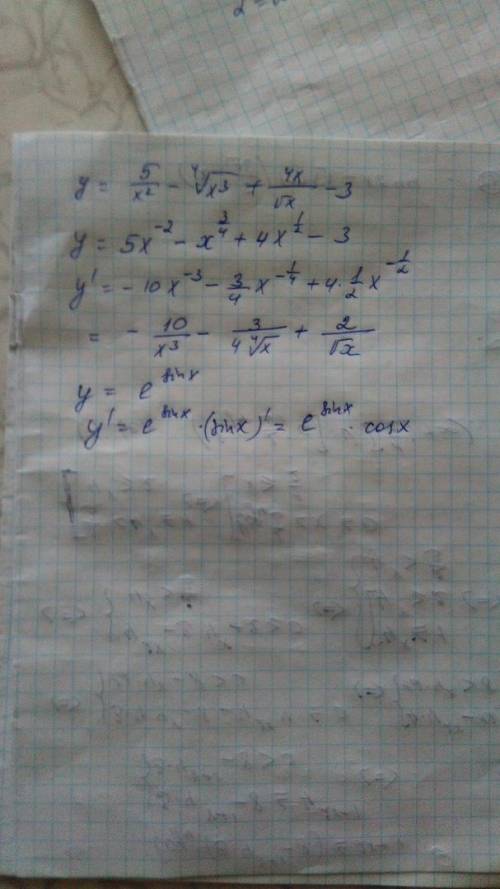 y = 5/x² - ⁴√x³ + 4x/√x - 3
y = 5x⁻² - x^(3/4) + 4x^(1/2) - 3
y' = -10x⁻³ - 3/4 x^(-1/4) + 4·1/2 x^(-1/2)
= - 10/x³ - 3/(4 ⁴√x) + 2/√x
y = e^(sinx)
y' = e^(sinx) · (sinx)' = e^(sinx) · cosx